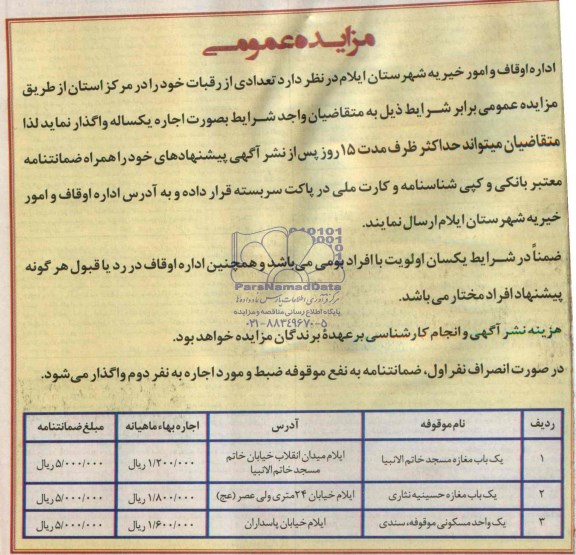 مزایده عمومی
اداره اوقاف و امور خیریه شهرستان ایلام در نظر دارد تعدادی از رقبات خود را در مرکز استان از طریق
مزایده عمومی برابر شرایط ذیل به متقاضیان واجد شرایط بصورت اجاره یکساله واگذار نماید لذا
متقاضیان میتواند حداکثر ظرف مدت ۱۵ روز پس از نشر آگهی پیشنهادهای خود را همراه ضمانتنامه
معتبر بانکی و کپی شناسنامه و کارت ملی در پاکت سربسته قرار داده و به آدرس اداره اوقاف و امور
خیریه شهرستان ایلام ارسال نمایند.
ضمناً در شرایط یکسان اولویت با افراد بومی می‌باشد و همچنین اداره اوقاف در رد یا قبول هر گونه
پیشنهاد افراد مختار می باشد.
ParsNamadData
پایگاه اطلاع رسانی مناقصه و مزایده
۰۲۱-۸۸۳۴۹۶۷۰-۵
هزینه نشر آگهی و انجام کارشناسی بر عهدهٔ برندگان مزایده خواهد بود.
در صورت انصراف نفر اول، ضمانتنامه به نفع موقوفه ضبط و مورد اجاره به نفر دوم واگذار می‌شود.
ردیف نام موقوفه آدرس اجاره بهاء ماهیانه مبلغ ضمانتنامه
۱ یک باب مغازه مسجد خاتم الانبیا ایلام میدان انقلاب خیابان خاتم مسجد خاتم الانبیا ۱/۲۰۰/۰۰۰ ریال ۵/۰۰۰/۰۰۰ ریال
۲ یک باب مغازه حسینیه نثاری ایلام خیابان ۲۴متری ولی عصر (عج) ۱/۸۰۰/۰۰۰ ریال ۵/۰۰۰/۰۰۰ ریال
۳ یک واحد مسکونی موقوفه، سندی ایلام خیابان پاسداران ۱/۶۰۰/۰۰۰ ریال ۵/۰۰۰/۰۰۰ ریال